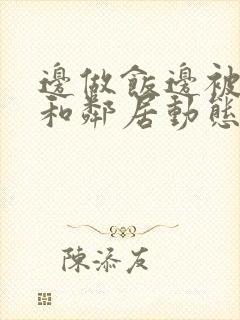 邊做飯邊被
和鄰居動態
陳添友